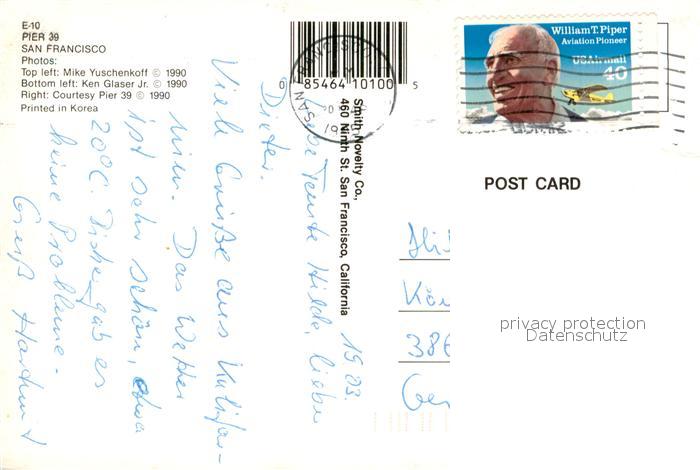 E-10
PIER 39
SAN FRANCISCO
Photos:
Top left: Mike Yuschenkoff © 1990
Bottom left: Ken Glaser Jr. © 1990
Right: Courtesy Pier 39 © 1990
Printed in Korea
0 85464 10100 5
Smith Novelty Co.,
460 Ninth St. San Francisco, California
SAN FRANCISCO
William T. Piper
Aviation Pioneer
USAirmail
40
POST CARD
19.03.
Liebe Tante Hilde, lieber
Dieter.
Viele Grüße aus Kalifor-
nien. Das Wetter
ist sehr schön, etwa
20°C. Bisher gab es
keine Probleme.
Gruß Hartmut
privacy protection
Datenschutz